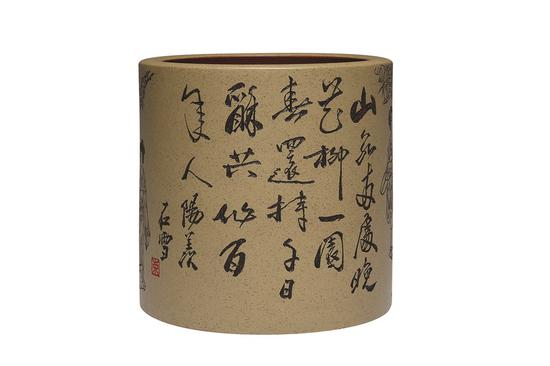 山泉兩處晚
花柳一園
春還持千日
醉共作百
年人陽羨
石雪